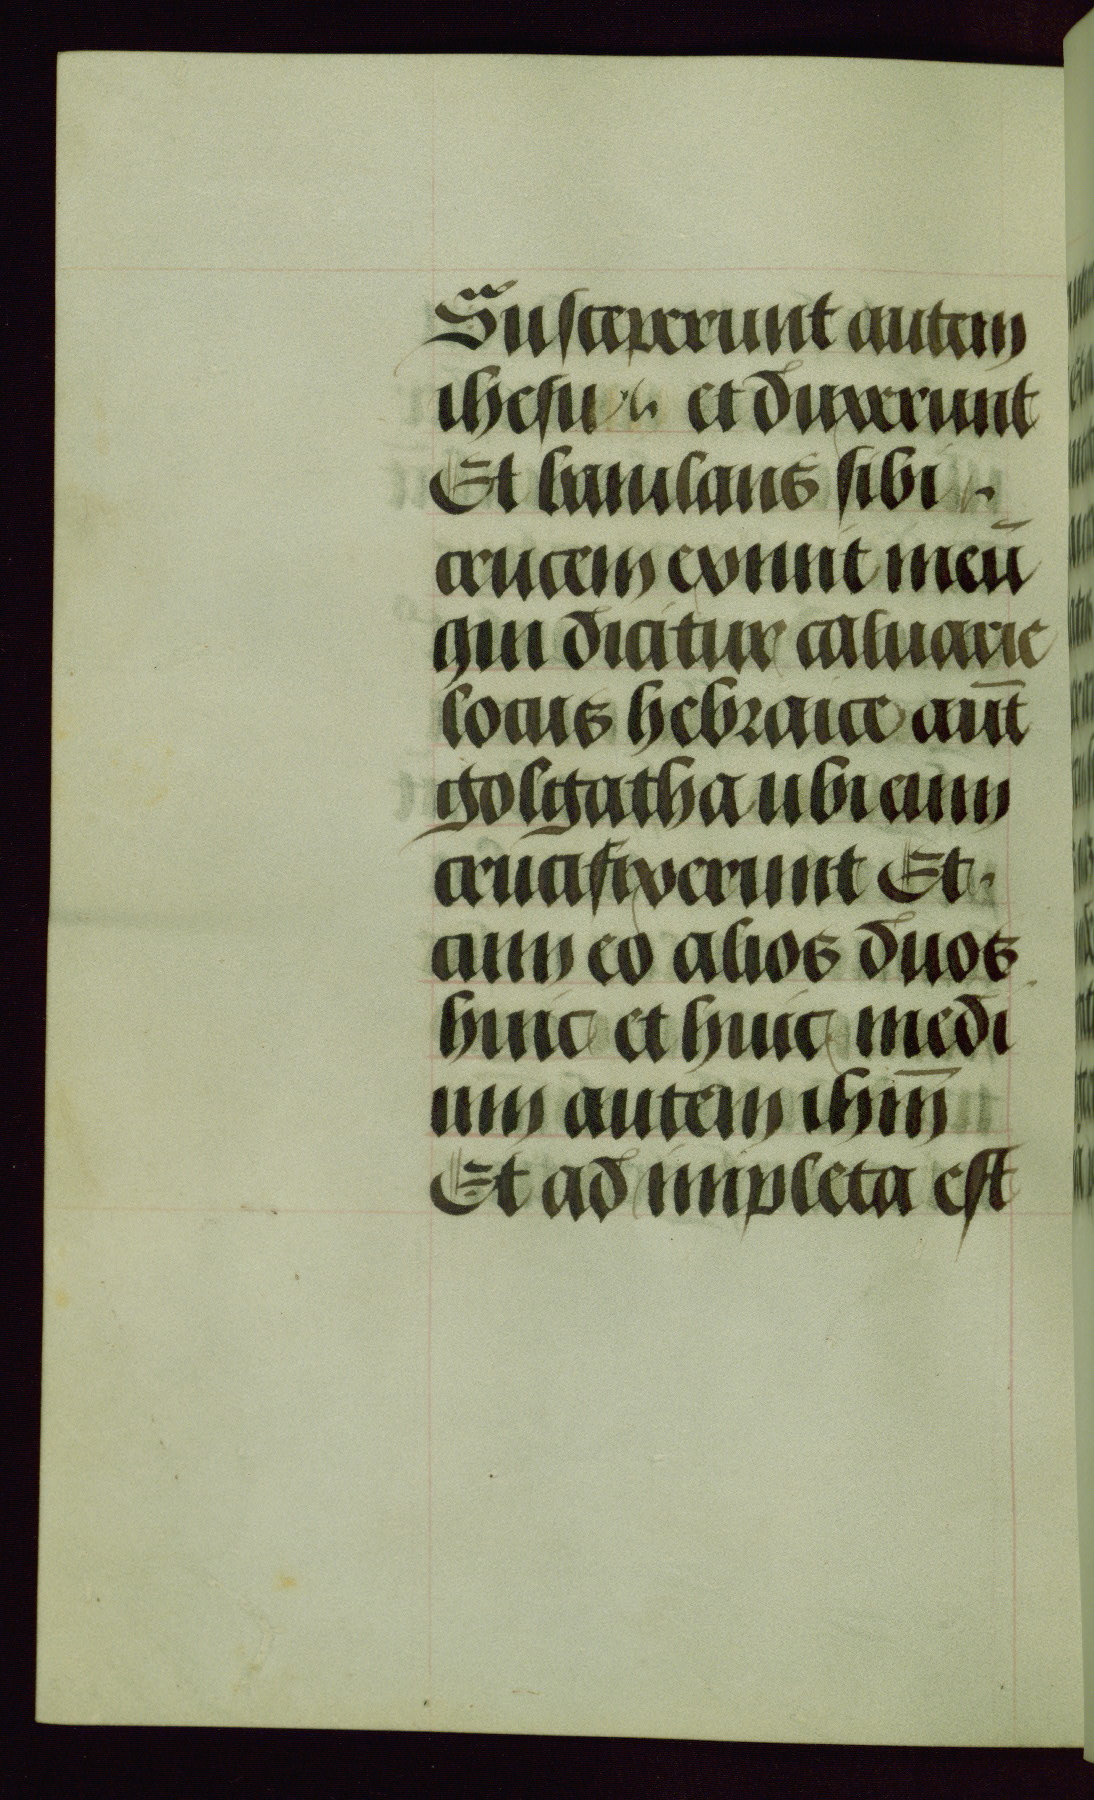 Susceperunt autem
ihesu et duxerunt
Et baiulans sibi
crucem exiuit in eū
qui dicitur caluarie
locus hebraice aut̄
golgatha ubi eum
crucifixerunt Et
cum eo alios duos
hinc et hinc medi
um autem ihm̄
Et adimpleta est